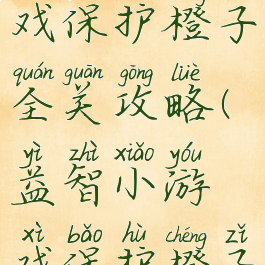 戏保护橙子
quán guān gōng lüè
全关攻略(
yì zhì xiǎo yóu
益智小游
xì bǎo hù chéng zǐ
戏保护橙子